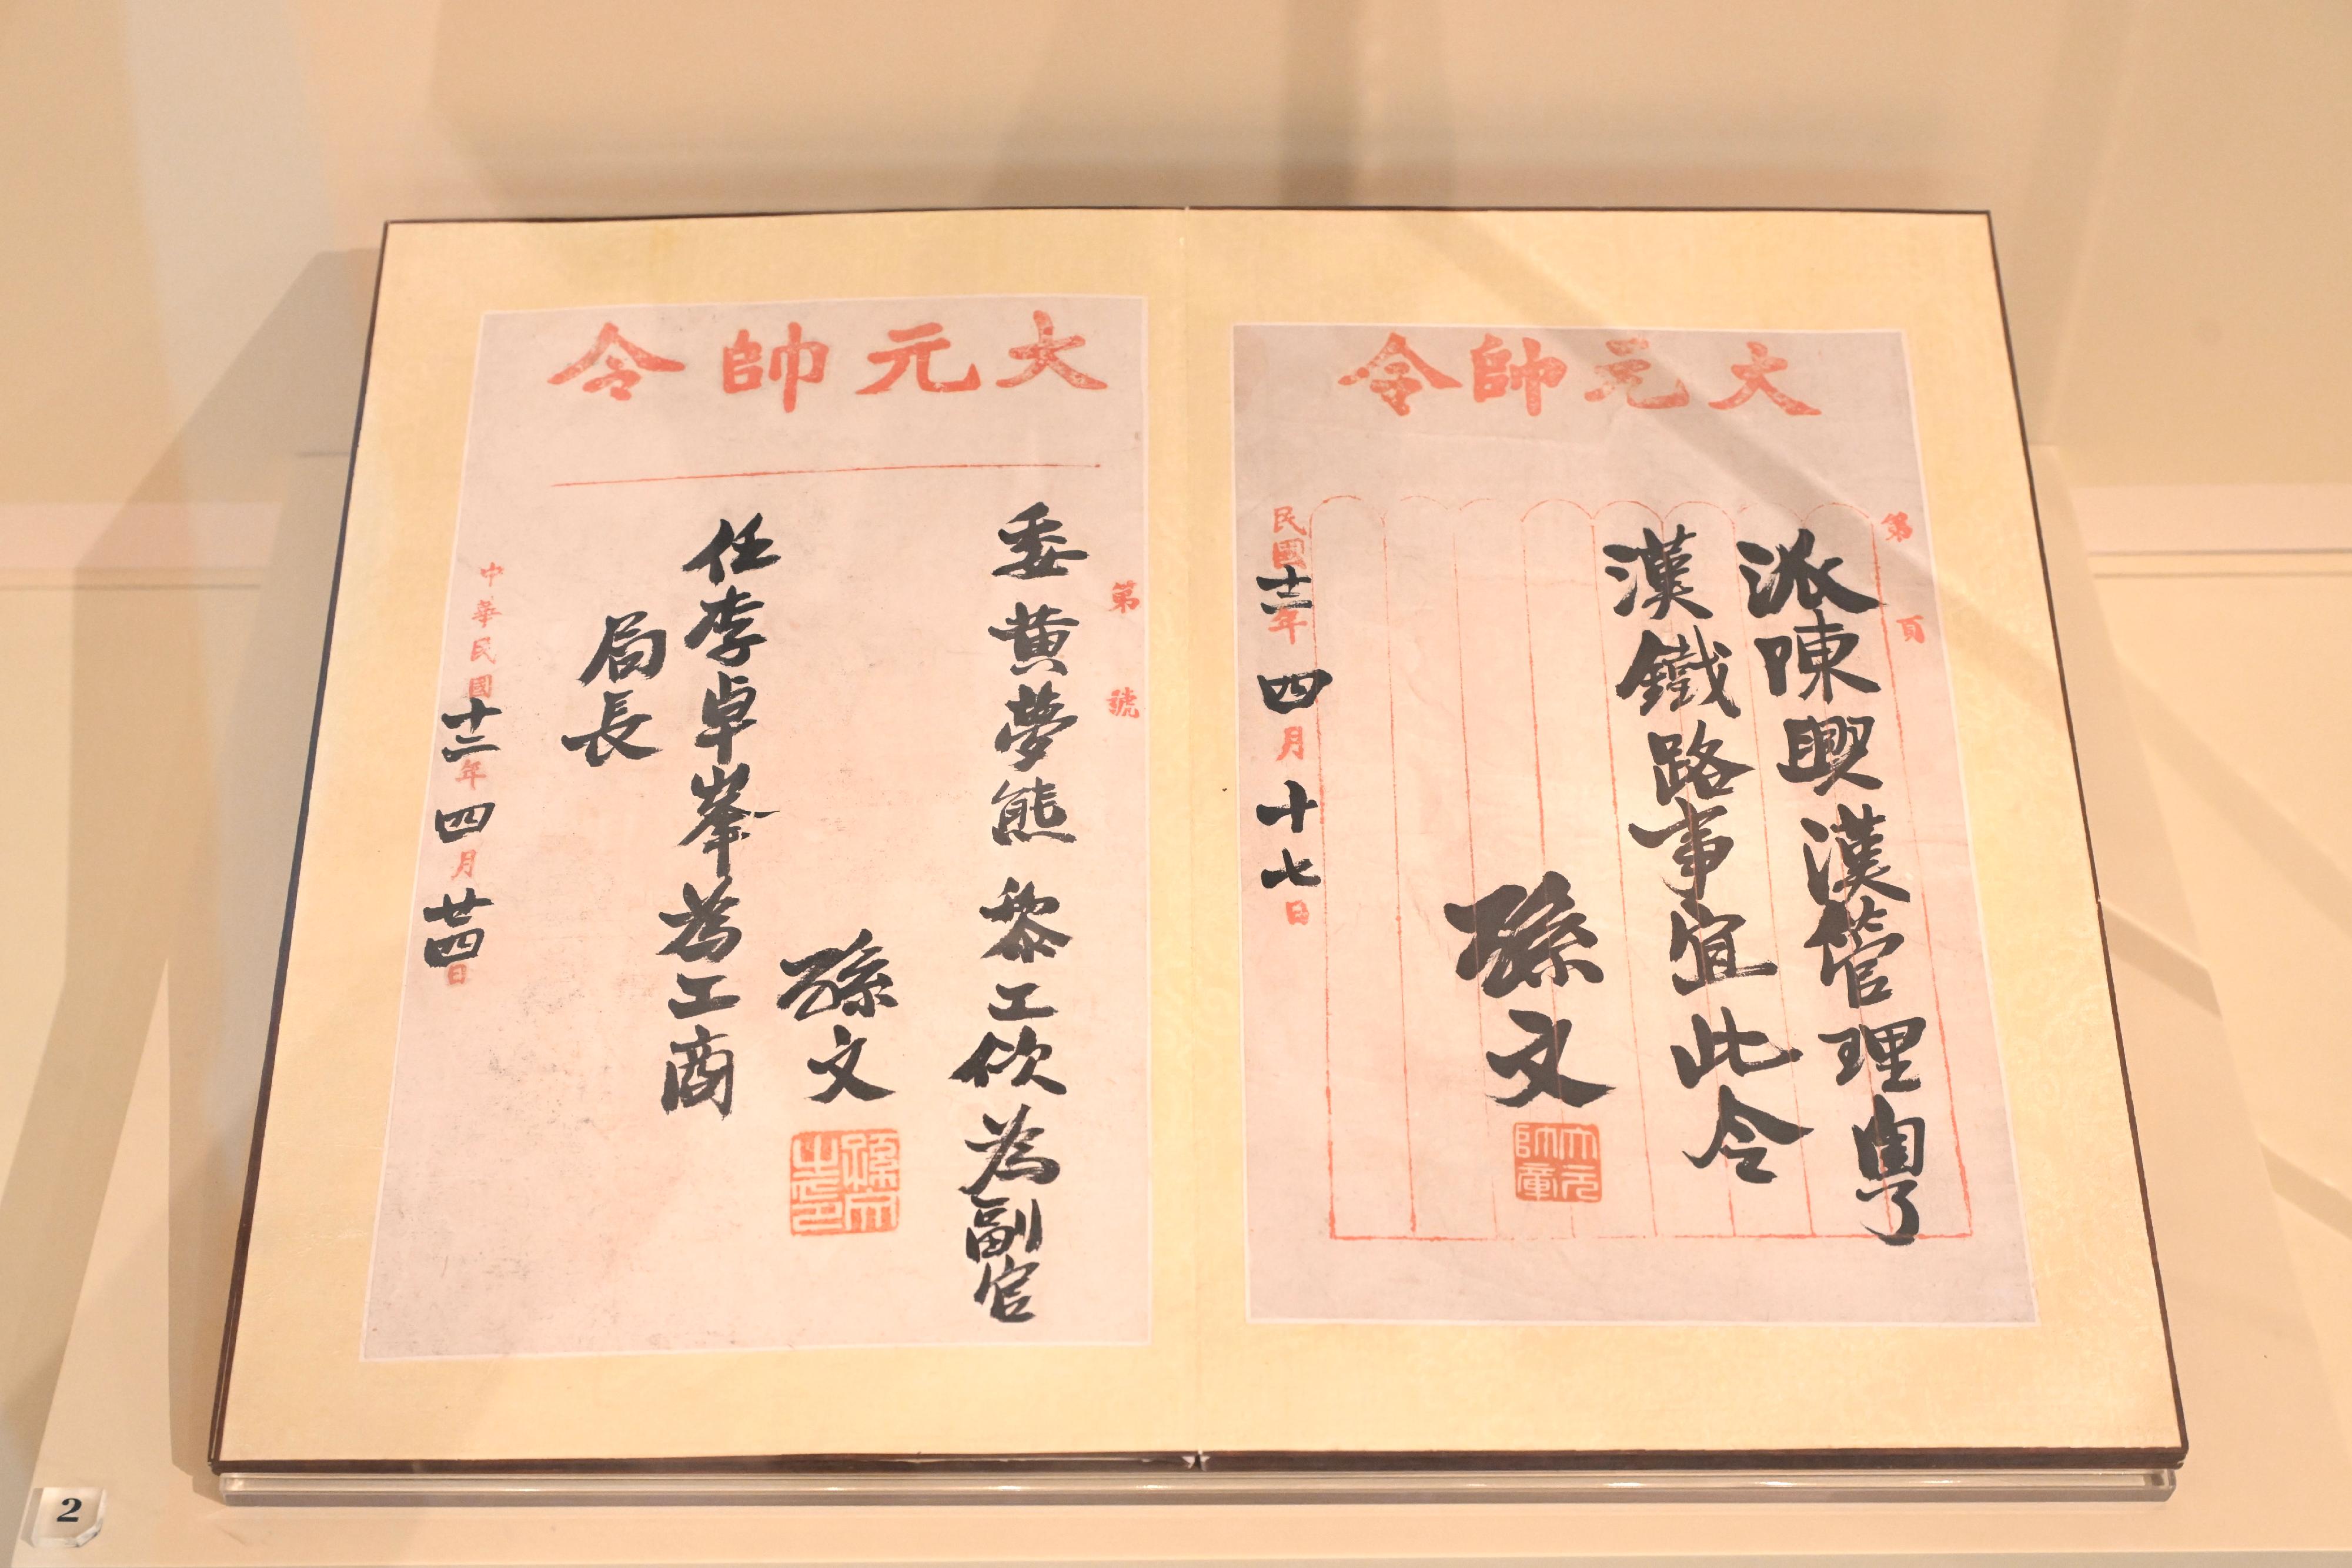 大元帥令
第 頁
派陳興漢管理粵
漢鐵路事宜此令
孫文
大元帥章
民國十二年四月十七日
大元帥令
第 號
委黃夢熊 黎工佽為副官
孫文
孫文之印
任李卓峯為工商
局長
中華民國十二年四月廿四日
2